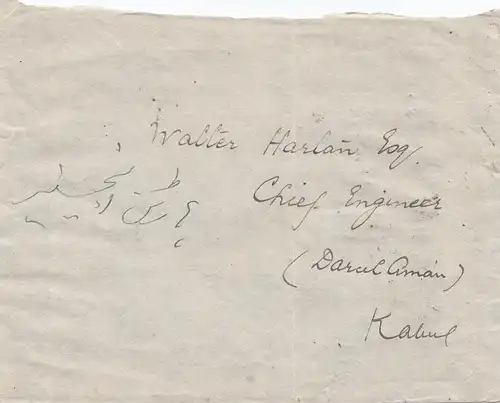 Walter Harlan Esq.
Chief Engineer
(Darul Aman)
Kabul